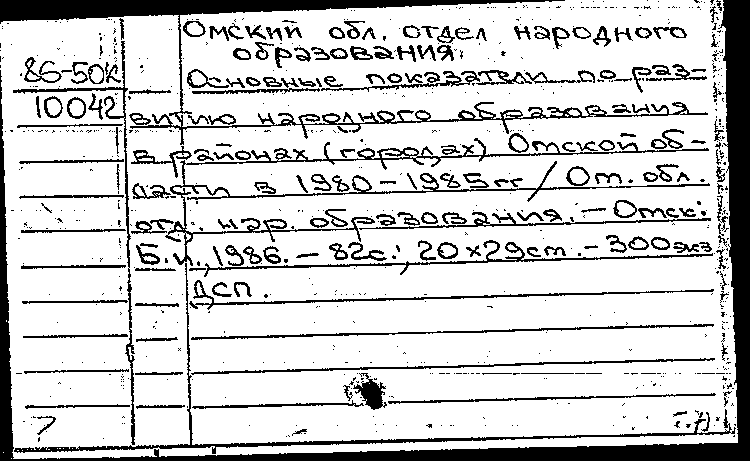 Омский обл. отдел народного
образования.
86-50к
Основные показатели по раз-
10042
витию народного образования
в районах (городах) Омской об-
ласти в 1980-1985 гг / Ом. обл.
отд. нар. образования. - Омск:
Б.и., 1986. - 82с.; 20×29см. - 300экз
ДСП.